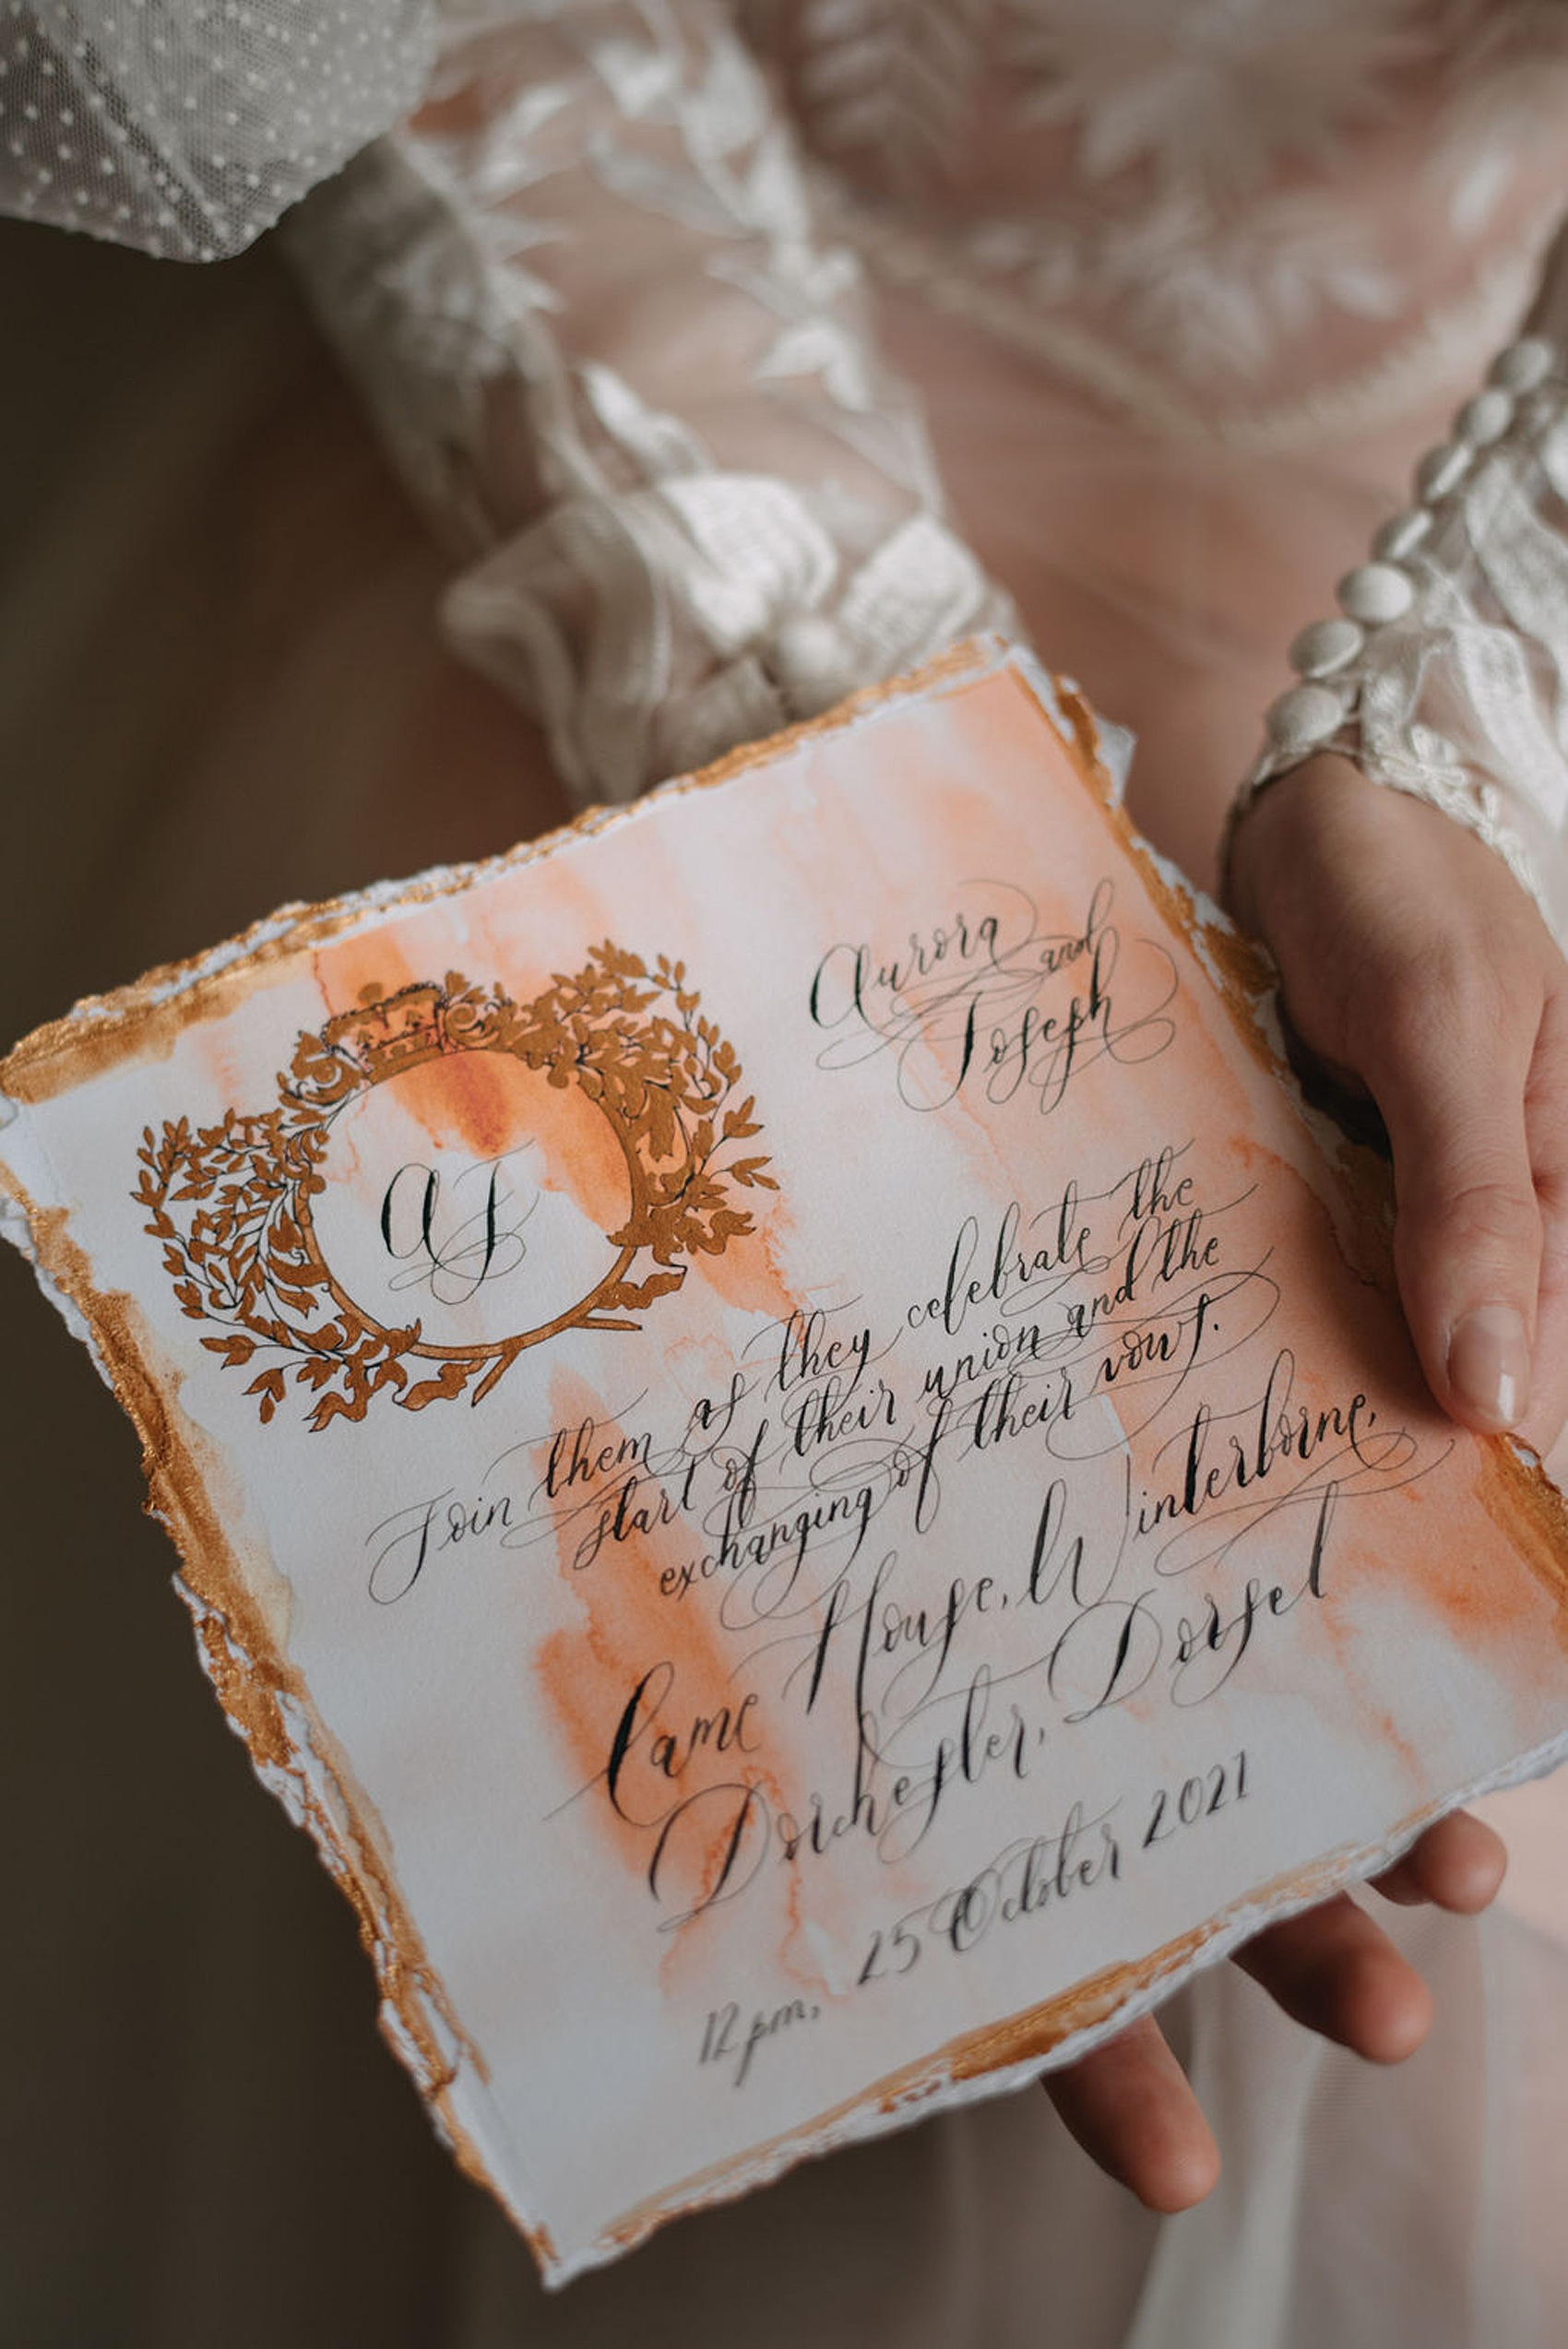 Aurora and
Joseph
AJ
Join them as they celebrate the
start of their union and the
exchanging of their vows.
Came House, Winterborne,
Dorchester, Dorset
12 pm, 25 October 2021